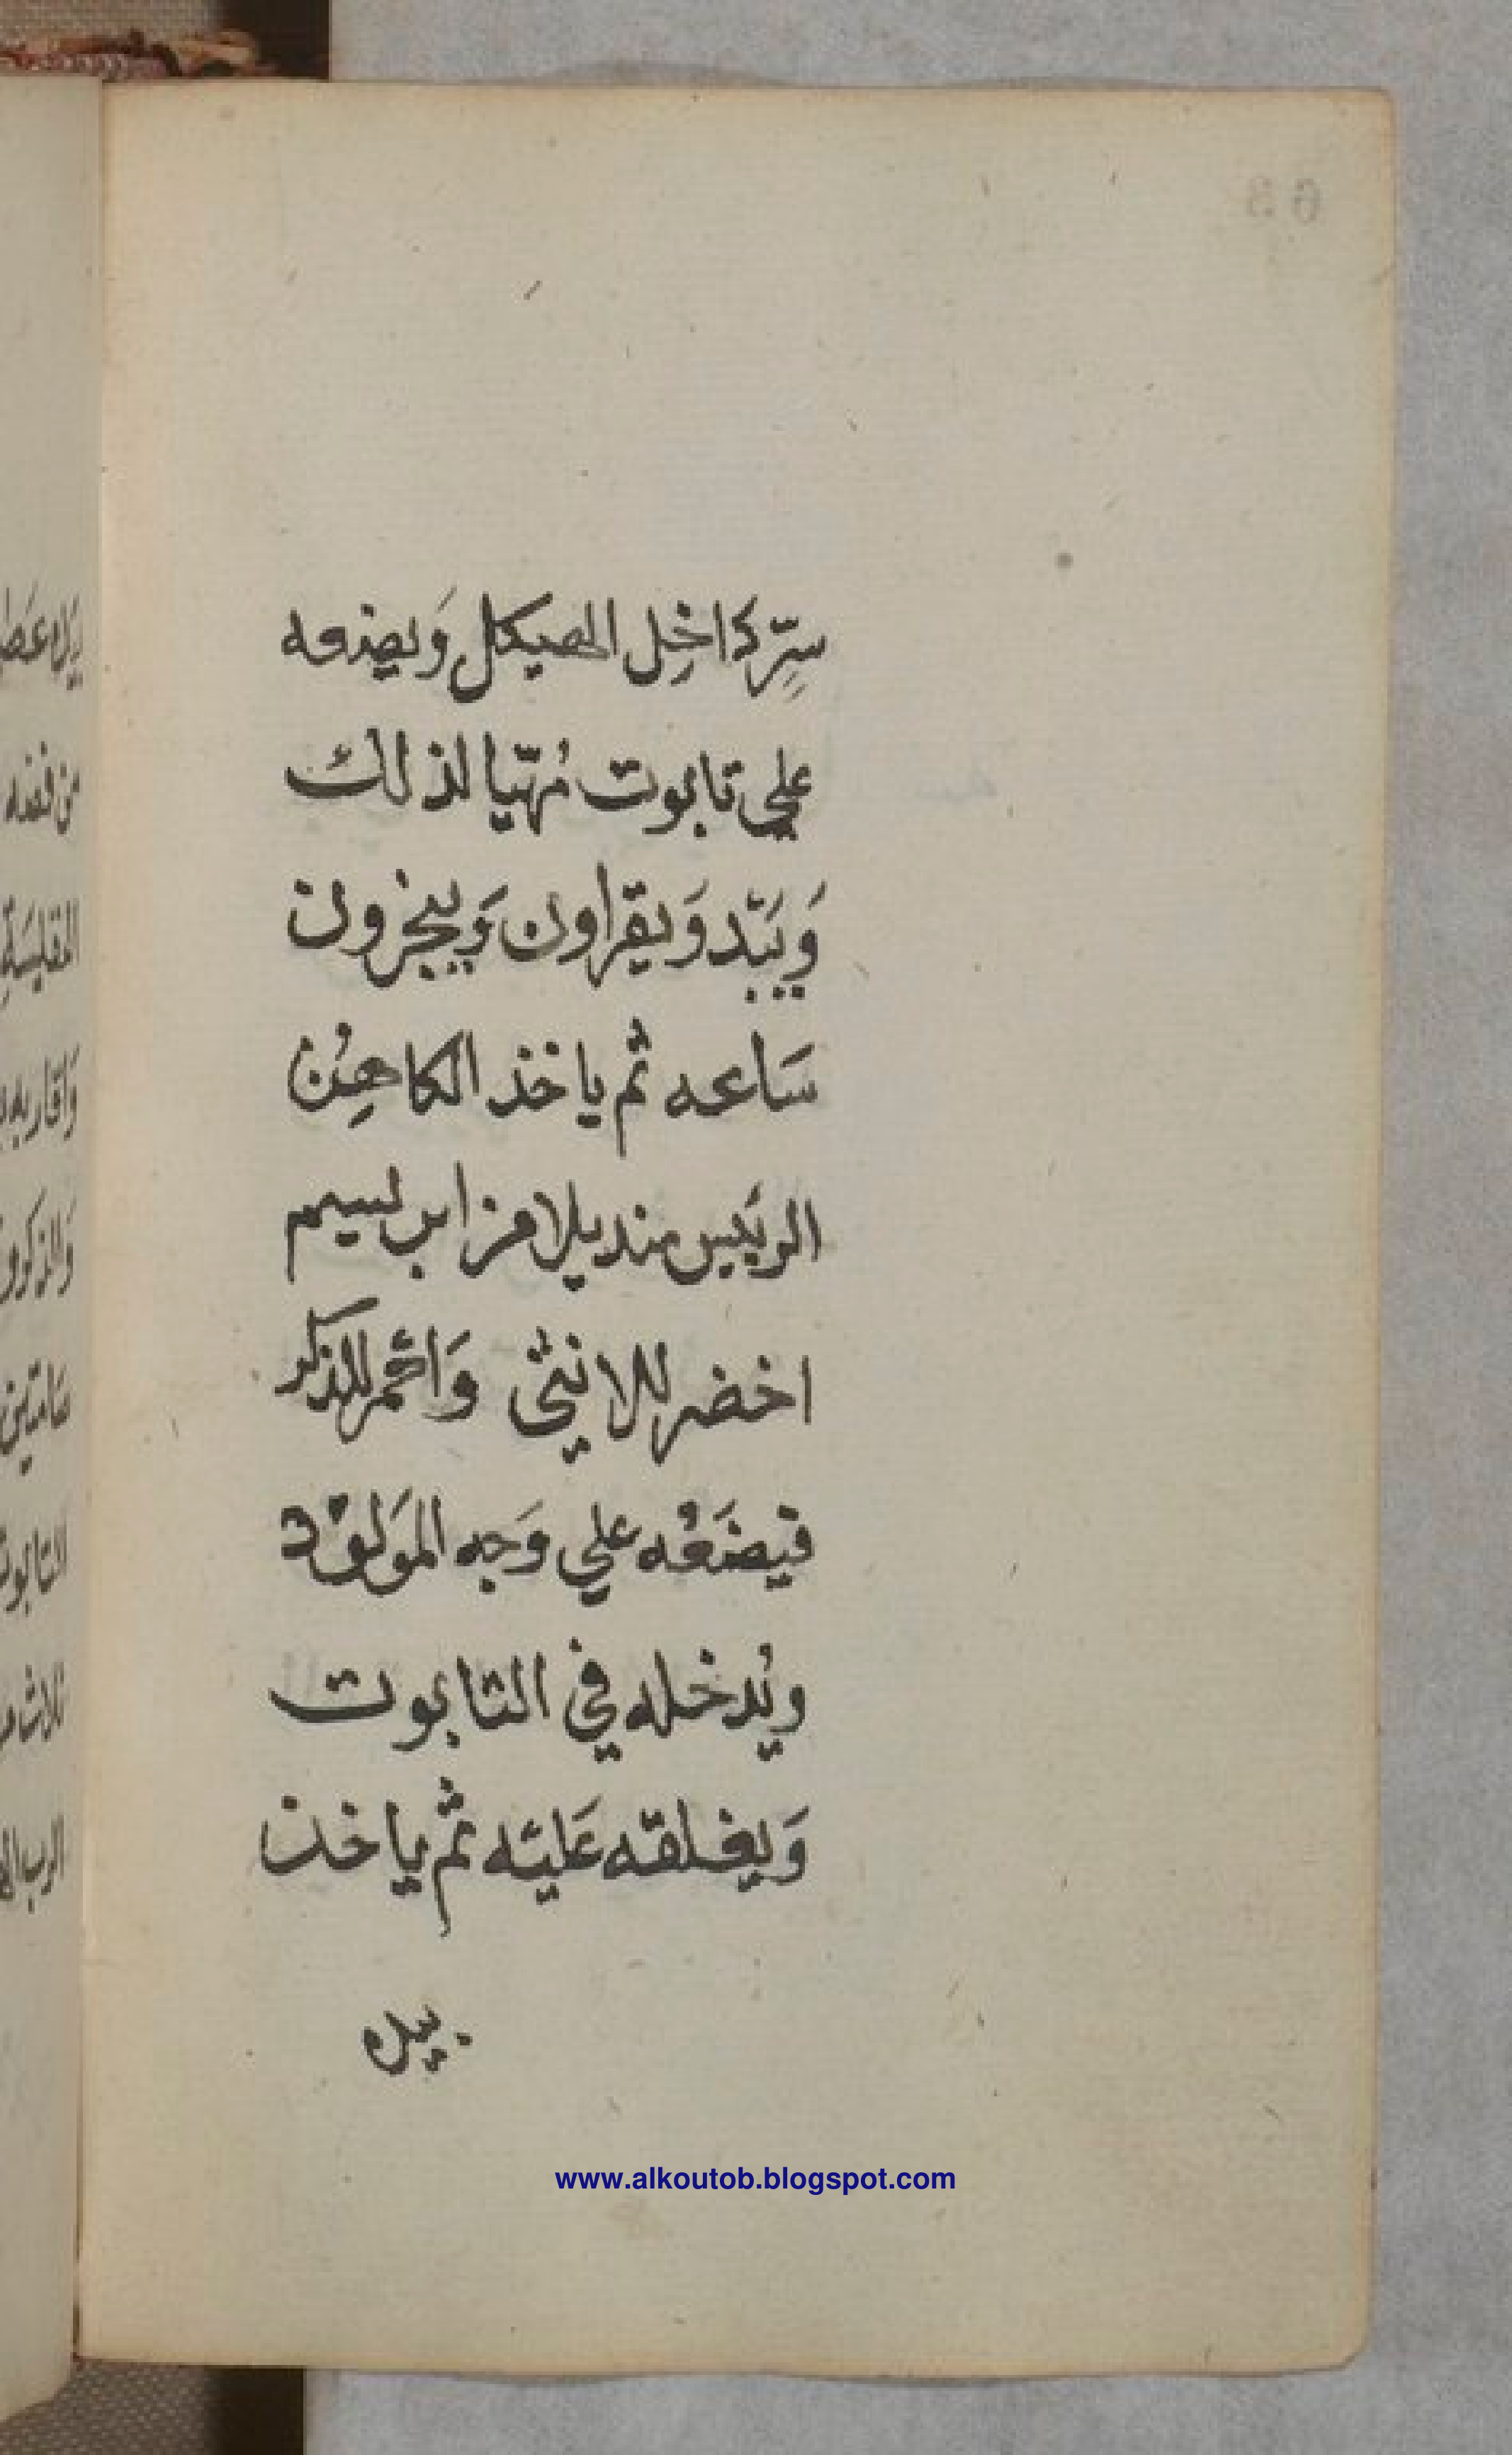 سِرّ دَاخِل الهيكل وَيضعه
علي تابوت مُهيّا لذلك
وَيَبْتدوَيقراون وَيبخرون
سَاعه ثم ياخذ الكاهِن
الرييَس منديلا من ابرلسيم
اخضر للانثي وَاحمر للذكر
فيضَعُه علي وَجه المَولود
ويُدخله في التابوت
وَيغلقه عَليَه ثم ياخذ
بيده
www.alkoutob.blogspot.com